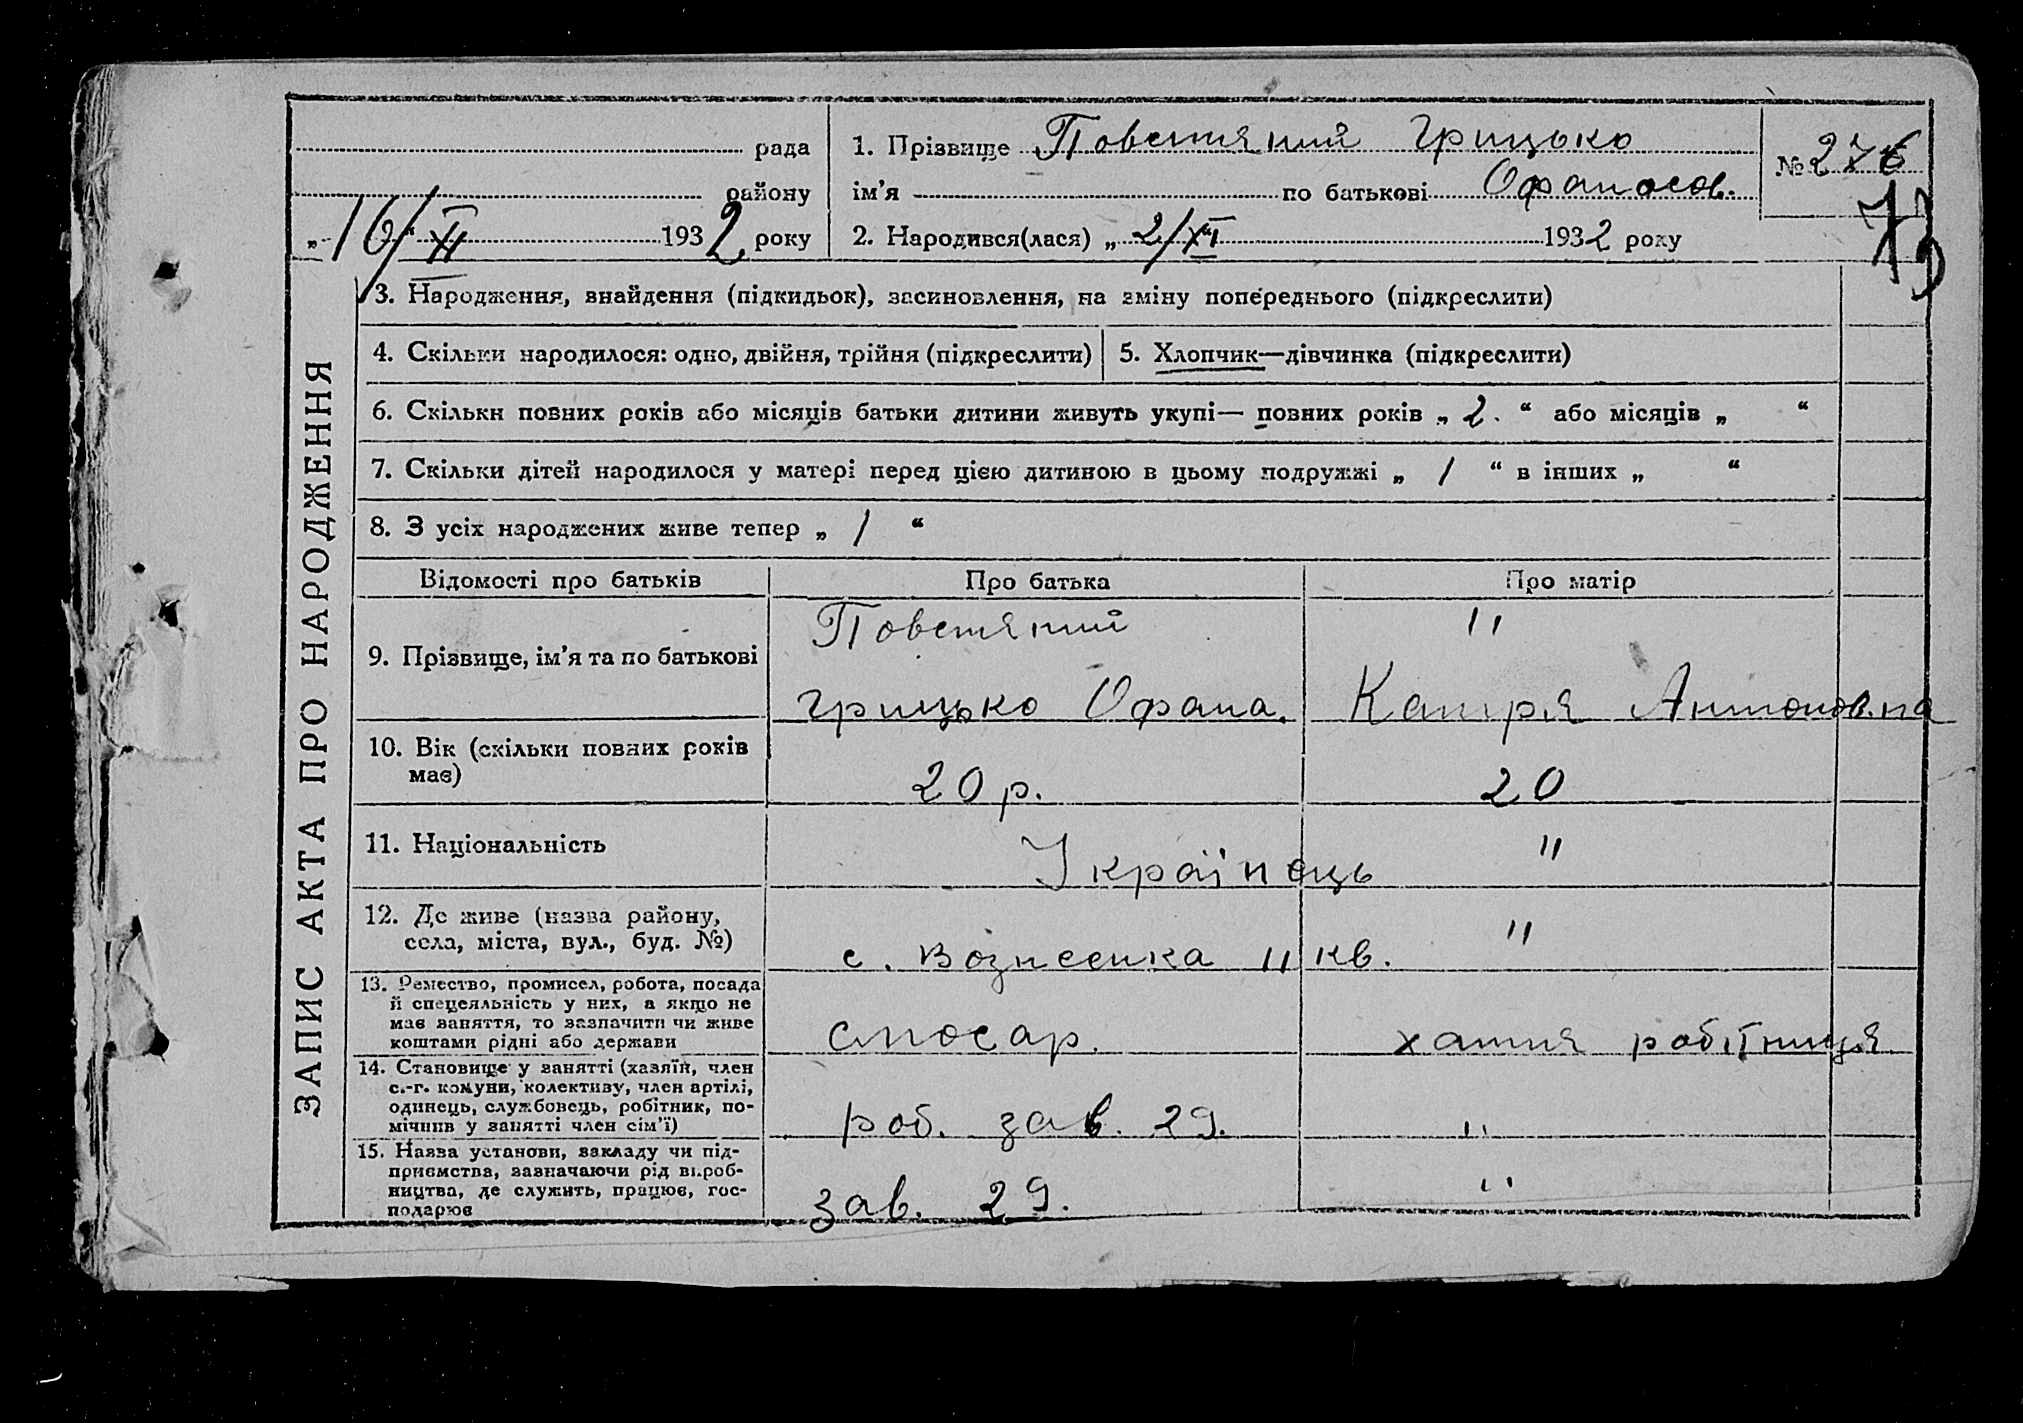 рада
району
„ 16/XI 1932 року
1. Прізвище Повстяний Грицько
ім’я по батькові Офанасов.
2. Народився(лася) „ 2/XI 1932 року
№ 276
73
ЗАПИС АКТА ПРО НАРОДЖЕННЯ
3. Народження, знайдення (підкидьок), засиновлення, на зміну попереднього (підкреслити)
4. Скільки народилося: одно, двійня, трійня (підкреслити)
5. Хлопчик—дівчинка (підкреслити)
6. Скільки повних років або місяців батьки дитини живуть укупі— повних років „ 2. “ або місяців „ “
7. Скільки дітей народилося у матері перед цією дитиною в цьому подружжі „ / “ в інших „ “
8. З усіх народжених живе тепер „ / “
Відомості про батьків Про батька Про матір
9. Прізвище, ім’я та по батькові
Повстяний "
Грицько Офана. Катря Антоновна
10. Вік (скільки повних років
має)
20 р. 20
11. Національність
Українець "
12. Де живе (назва району,
села, міста, вул., буд. №)
с. Вознесенка 11 кв. "
13. Ремество, промисел, робота, посада
й спецеяльність у них, а якщо не
має заняття, то зазначити чи живе
коштами рідні або держави
слюсар. хатня робітниця
14. Становище у занятті (хазяїн, член
с.-г. комуни, колективу, член артілі,
одинець, службовець, робітник, по-
мічник у занятті член сім’ї)
роб. зав. 29. "
15. Назва установи, закладу чи під-
приємства, зазначаючи рід вироб-
ництва, де служить, працює, гос-
подарює
зав. 29. "